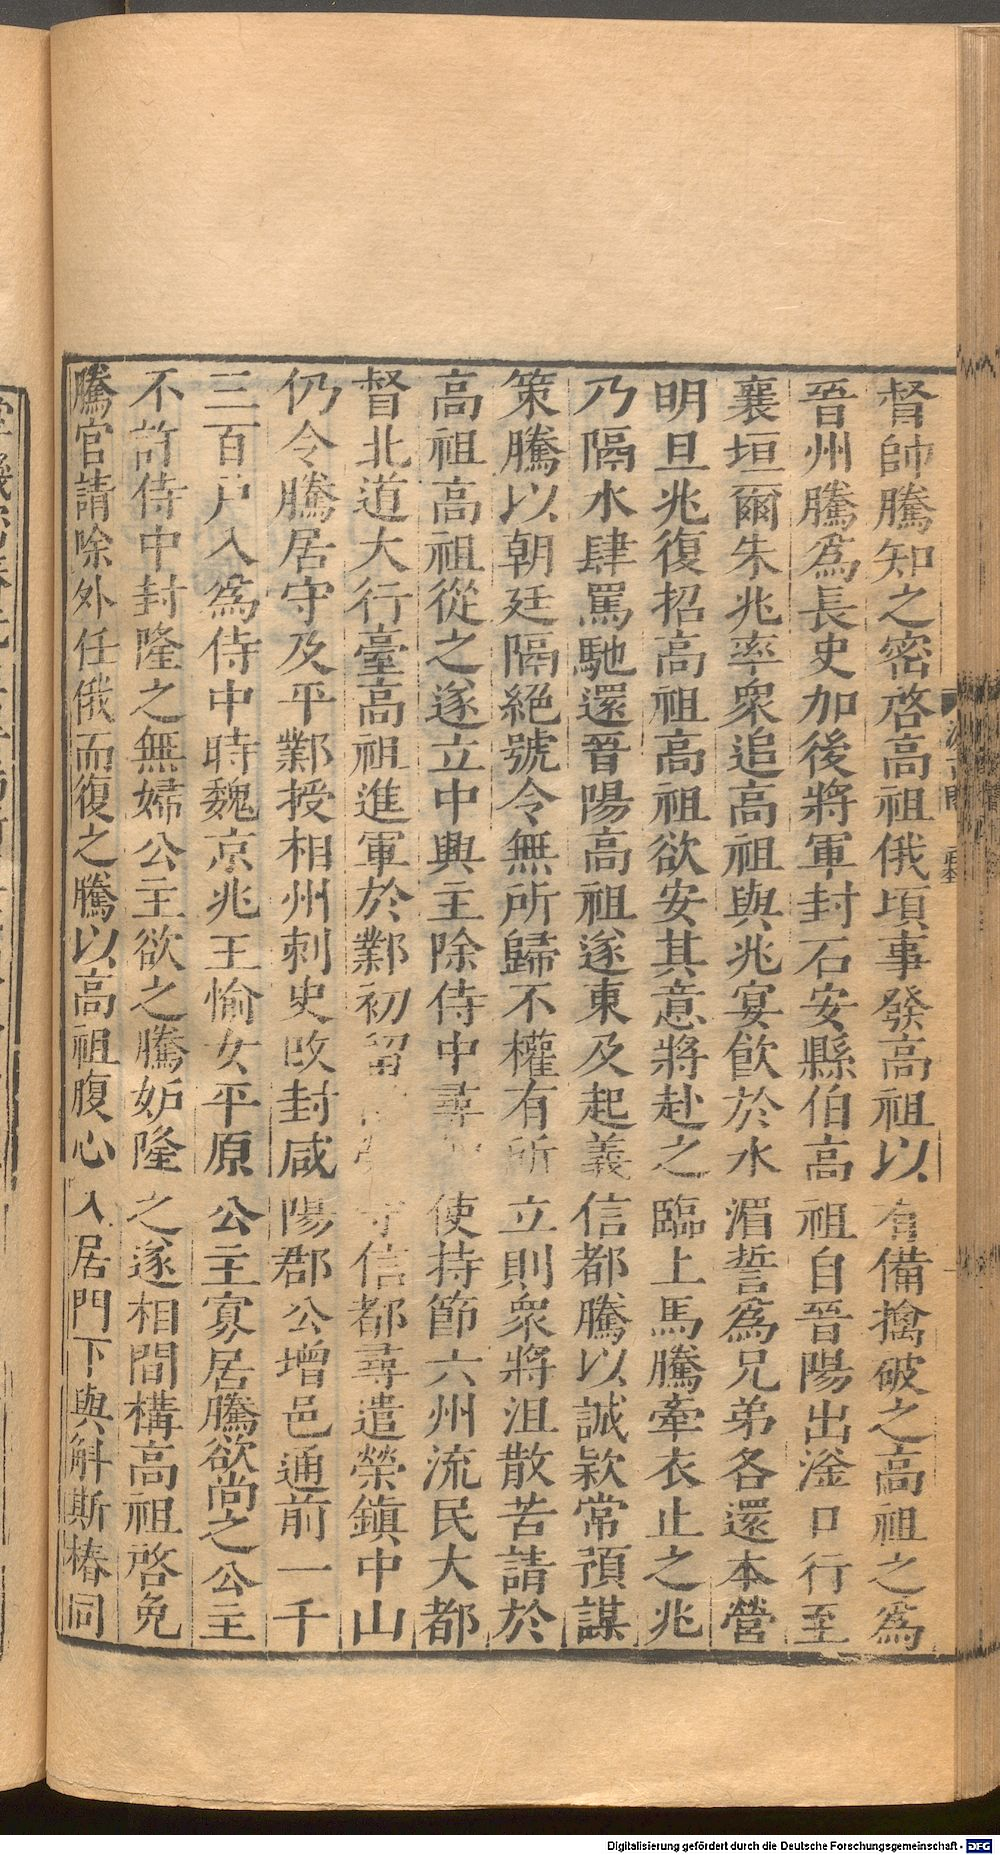 督帥騰知之密啓高祖俄頃事發高祖以有備擒破之高祖之為
晉州騰為長史加後將軍封石安縣伯高祖自晉陽出滏口行至
襄垣爾朱兆率衆追高祖與兆宴飲於水湄誓為兄弟各還本營
明旦兆復招高祖高祖欲安其意將赴之臨上馬騰牽衣止之兆
乃隔水肆罵馳還晉陽高祖遂東及起義信都騰以誠款常預謀
策騰以朝廷隔絕號令無所歸不權有所立則衆將沮散苦請於
高祖高祖從之遂立中興主除侍中尋使持節六州流民大都
督北道大行臺高祖進軍於鄴初留守信都尋遣榮鎮中山
仍令騰居守及平鄴授相州刺史改封咸陽郡公增邑通前一千
三百户入為侍中時魏京兆王愉女平原公主寡居騰欲尚之公主
不許侍中封隆之無婦公主欲之騰妬隆之遂相間構高祖啓免
騰官請除外任俄而復之騰以高祖腹心入居門下與斛斯椿同
Digitalisierung gefördert durch die Deutsche Forschungsgemeinschaft - DFG